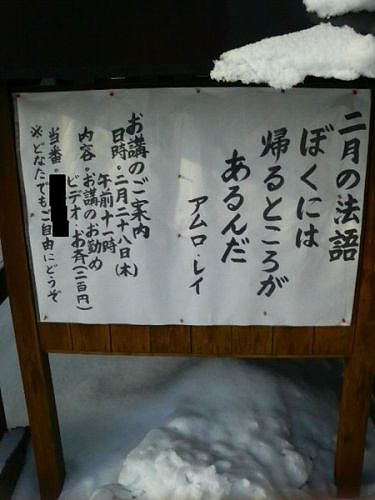 二月の法語
ぼくには
帰るところが
あるんだ
アムロ・レイ
お講のご案内
日時・二月二十八日(木)
午前十一時
内容・お講のお勤め
ビデオ・お斉(二百円)
当番・
※どなたでもご自由にどうぞ